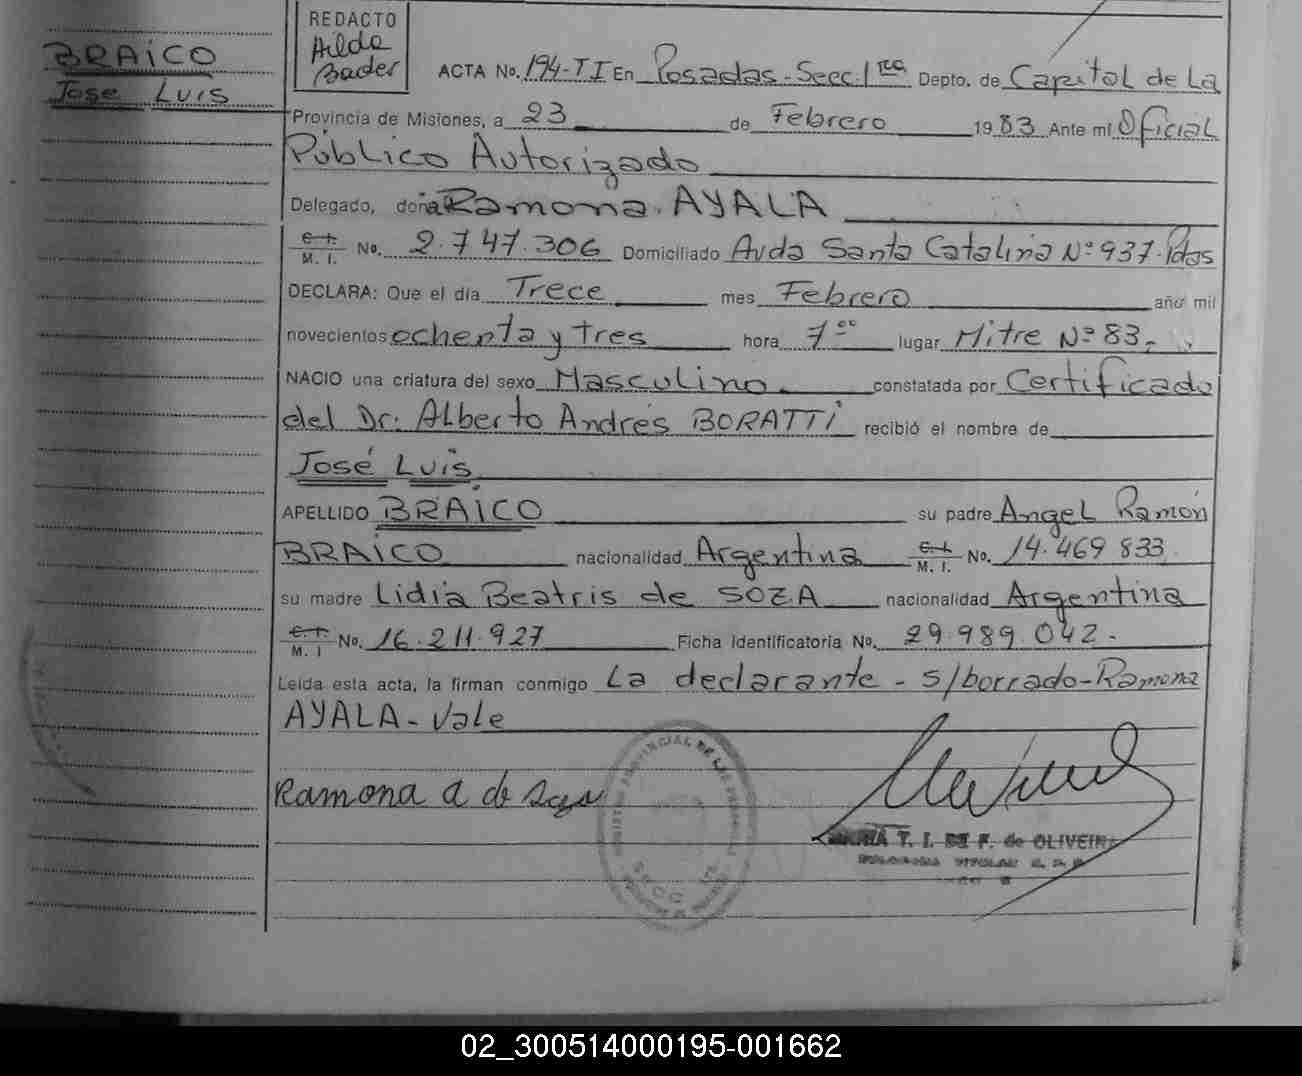 BRAICO
José Luis
REDACTO
Hilda
Bader
ACTA No. 194-TI En Posadas-Secc.1ra Depto. de Capital de La
Provincia de Misiones, a 23 de Febrero 1983 Ante mí Oficial
Público Autorizado
Delegado, doña Ramona AYALA
C. I. M. I. No. 2.747.306 Domiciliado Avda Santa Catalina Nº 937. Pdas
DECLARA: Que el día Trece mes Febrero año mil
novecientos ochenta y tres hora 7°° lugar Mitre Nº 83.
NACIO una criatura del sexo Masculino constatada por Certificado
del Dr. Alberto Andrés BORATTI recibió el nombre de
José Luis
APELLIDO BRAICO su padre Angel Ramón
BRAICO nacionalidad Argentina C. I. M. I. No. 14.469 833
su madre Lidia Beatris de SOZA nacionalidad Argentina
C. I. M. I No. 16.211.927 Ficha Identificatoria No. 29.989.042.-
Leída esta acta, la firman conmigo La declarante - s/borrado-Ramona
AYALA-Vale
Ramona a de
MARIA T. I. DE F. de OLIVEIRA
02_300514000195-001662